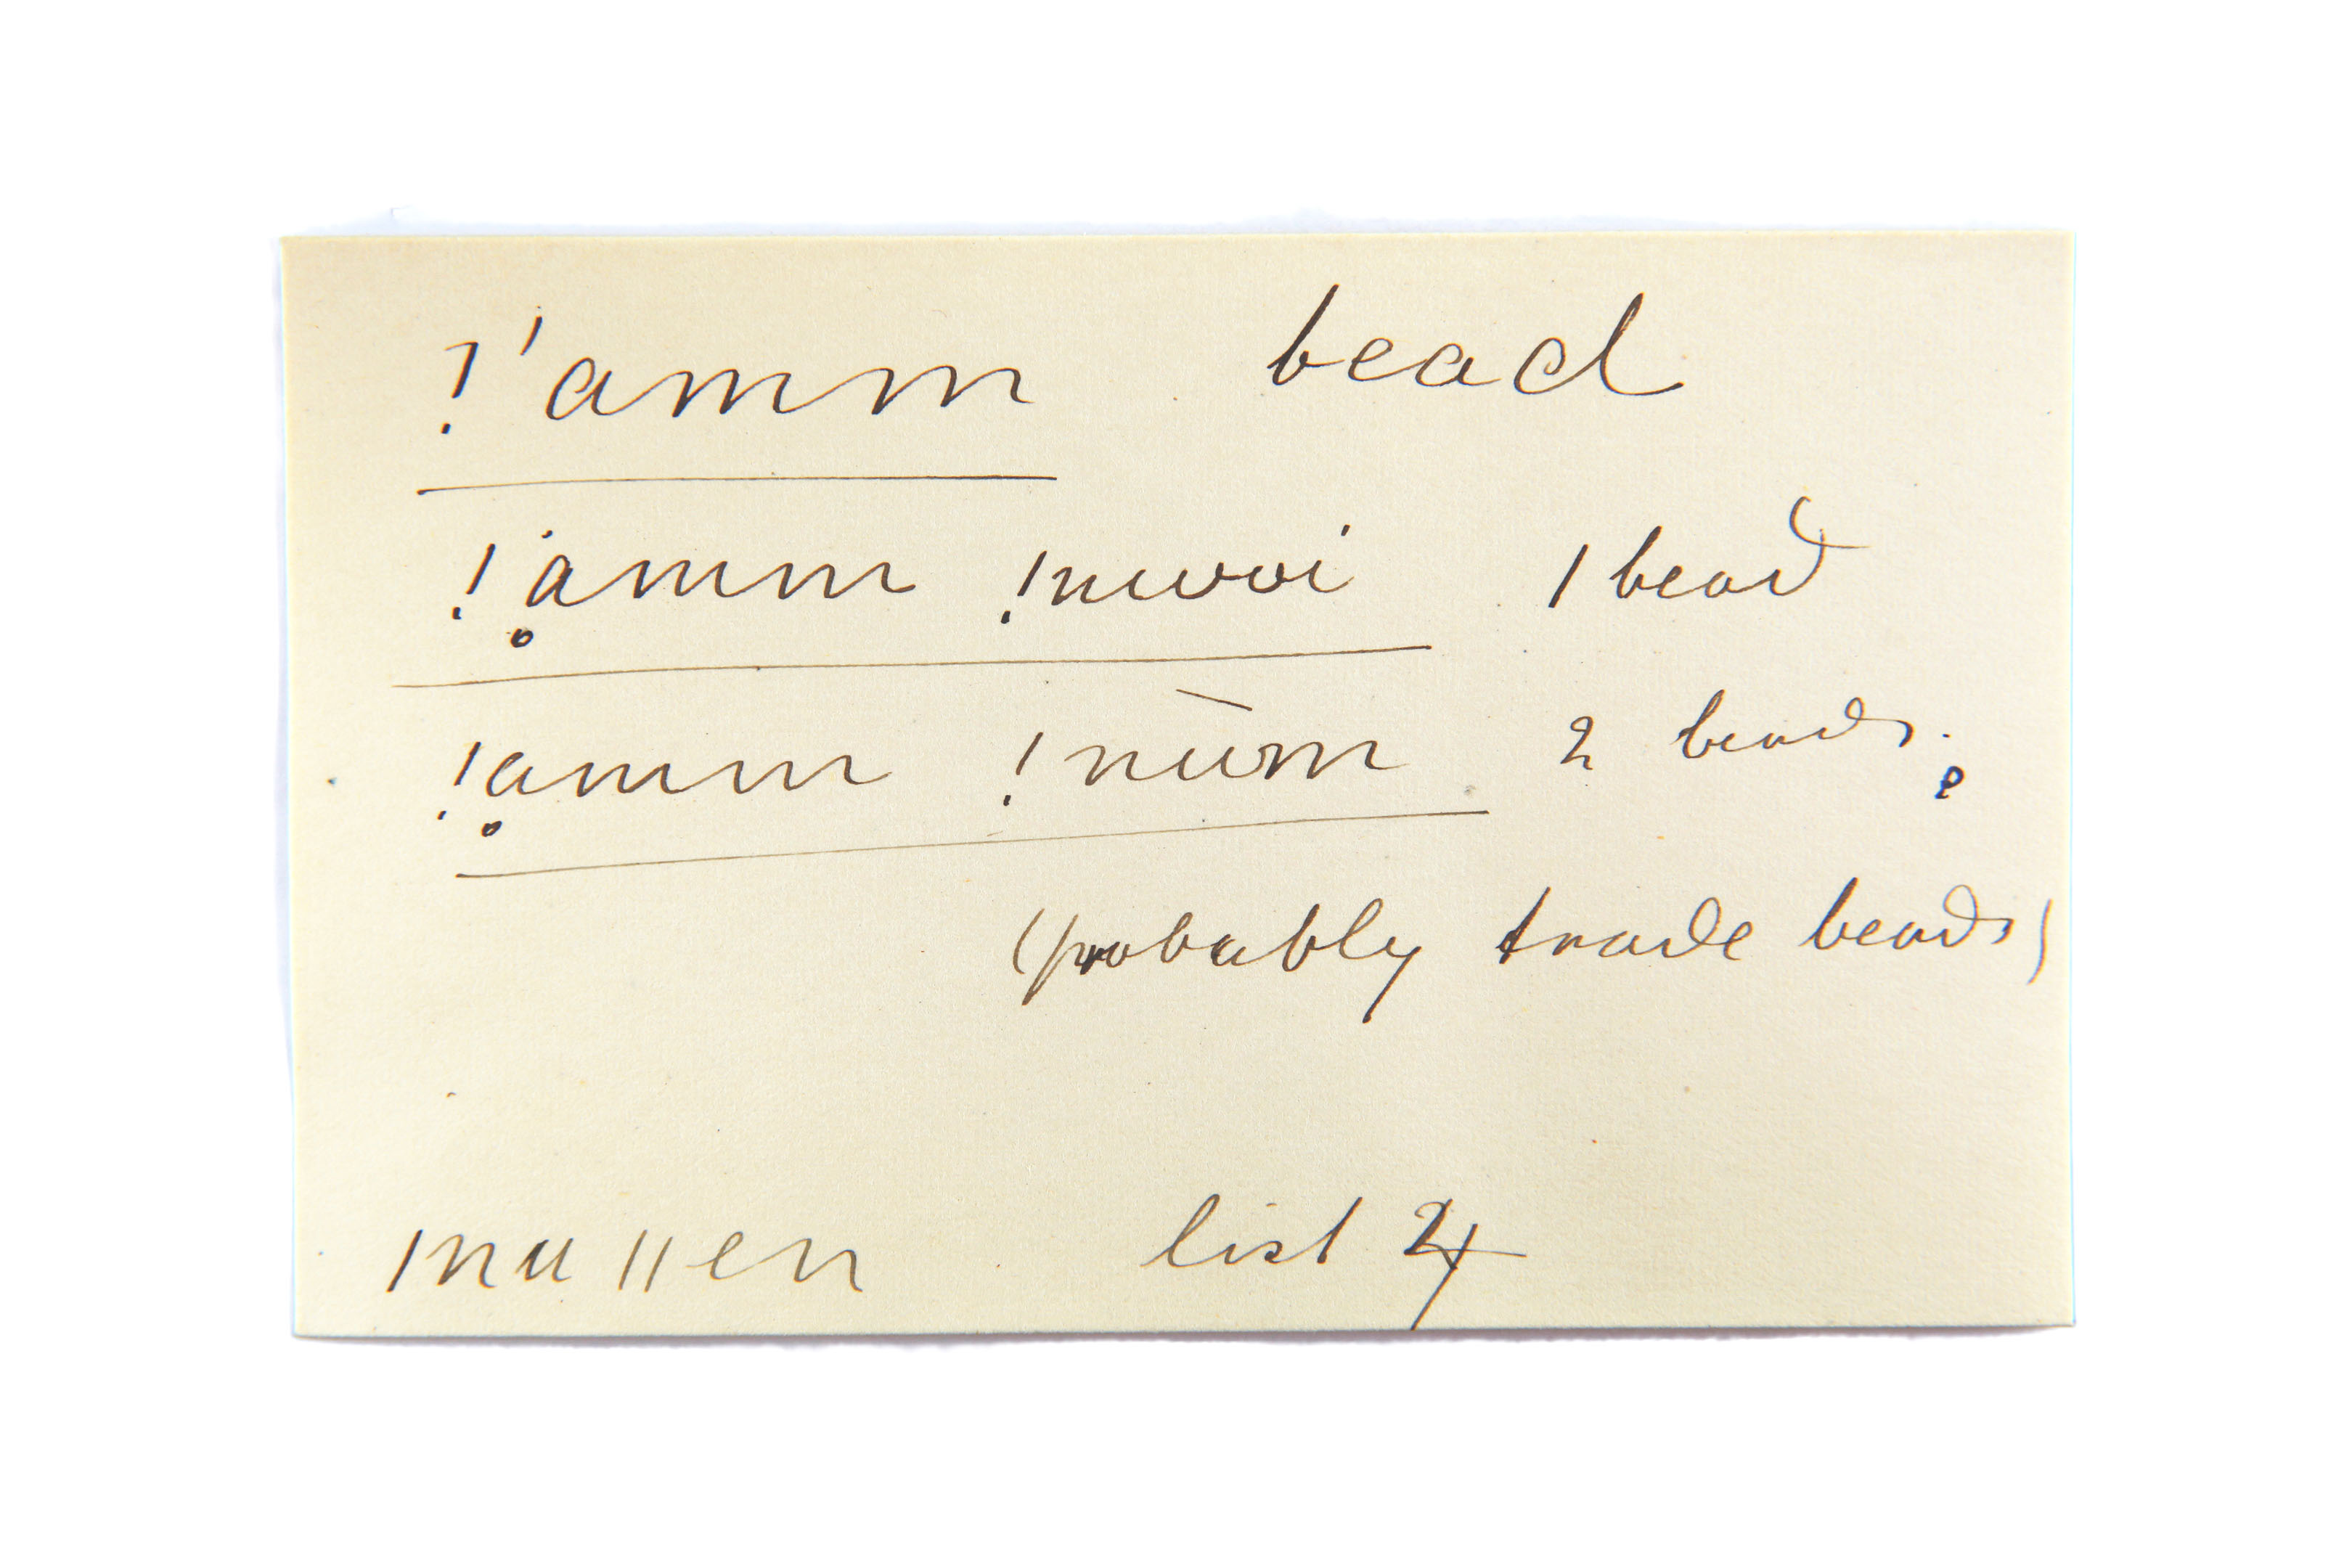 !'amm bead
!ạmm !nwoi 1 bead
!ạmm !nùm 2 beads.
(probably trade beads)
|nu||en list 4